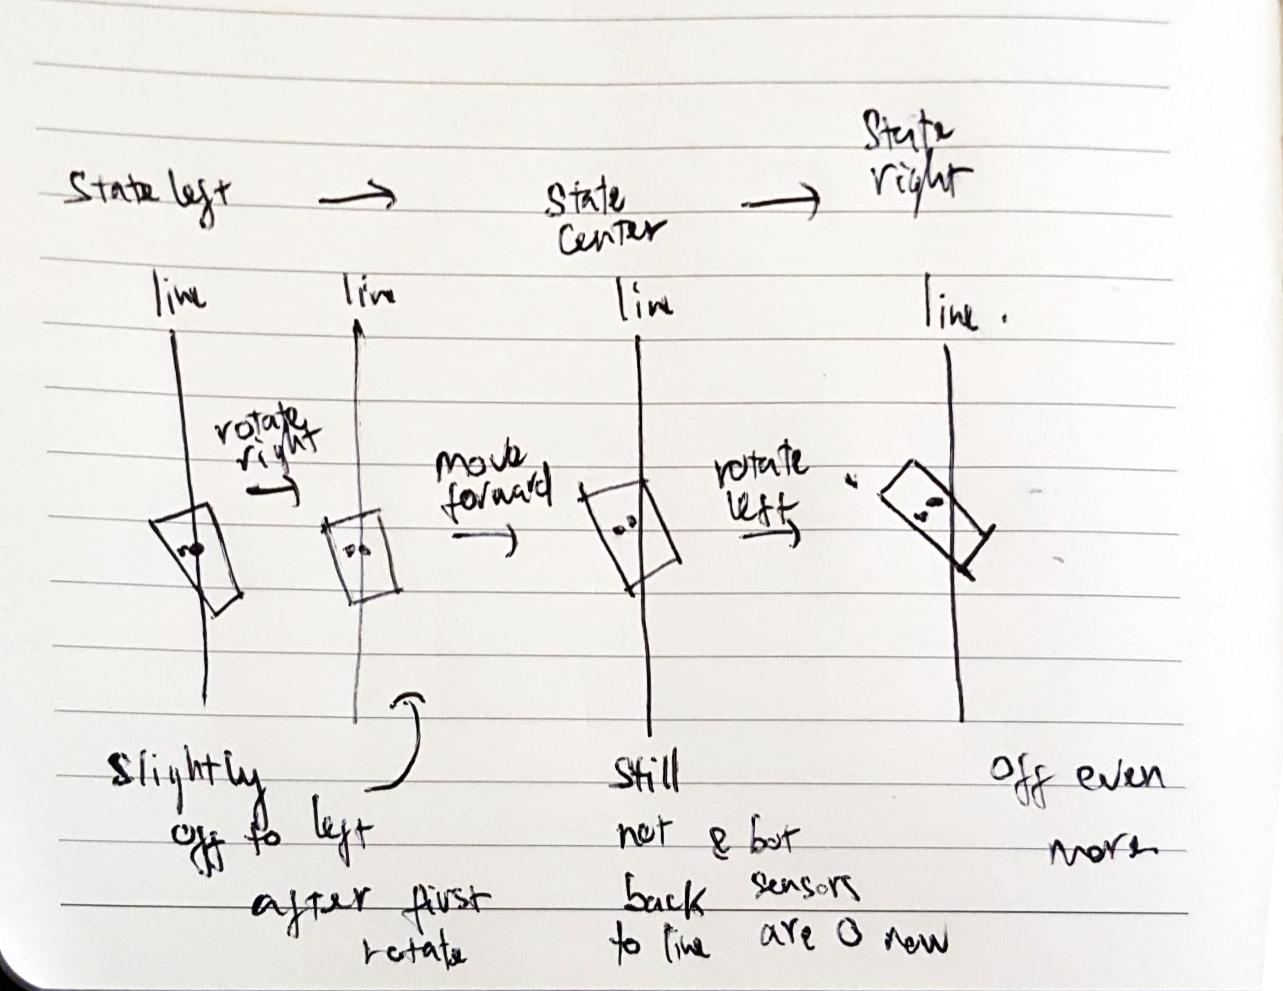 State left → State → State
center right
line line line line.
rotate
right
→
move
forward
→
rotate
left
→
Slightly
off to left
after first
rotate
Still
not & bot
back sensors
to line are 0 now
Off even
more